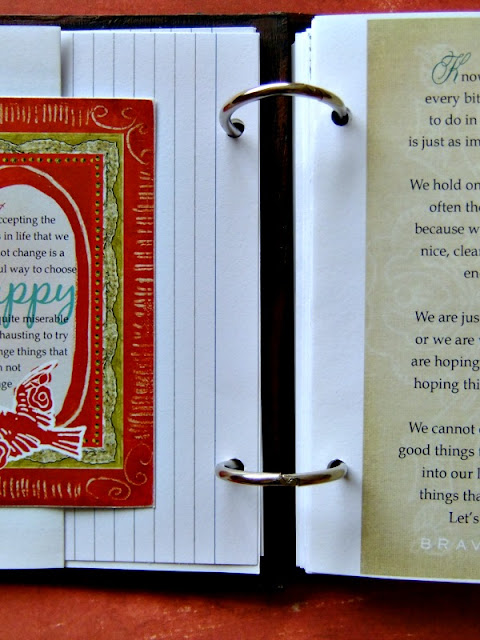 ccepting the
s in life that we
not change is a
ul way to choose
appy
quite miserable
hausting to try
nge things that
n not
nge
Know
every bit
to do in
is just as im
We hold on
often the
because w
nice, clea
en
We are jus
or we are
are hoping
hoping thi
We cannot
good things
into our l
things tha
Let's
BRAV